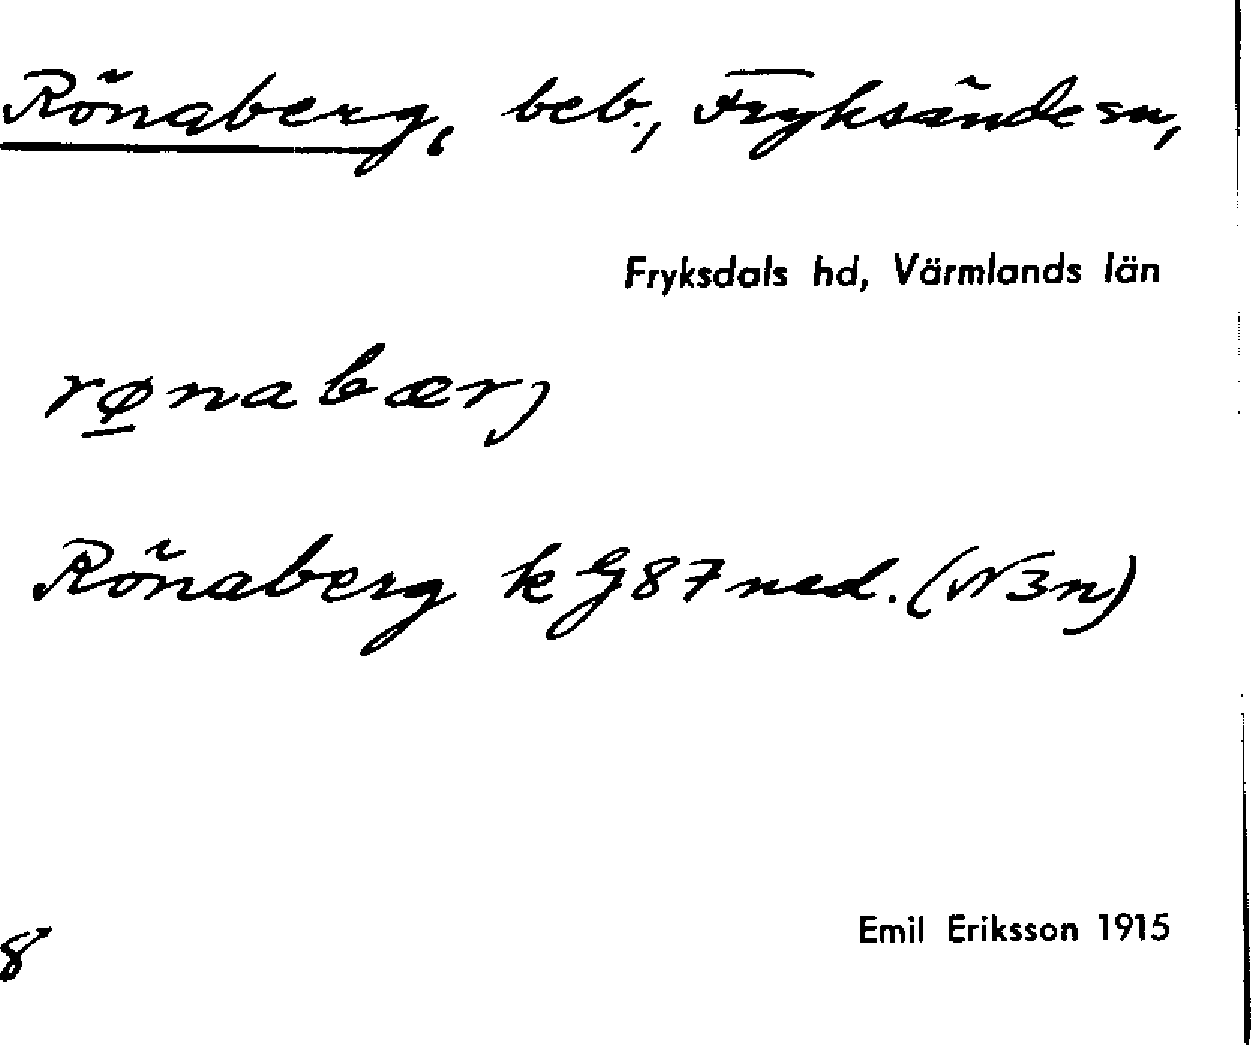 Rönaberg, beb., Fryksände sn,
Fryksdals hd, Värmlands län
rø̲nabærj
Rönaberg k G 87 ned. (N3n)
Emil Eriksson 1915
8